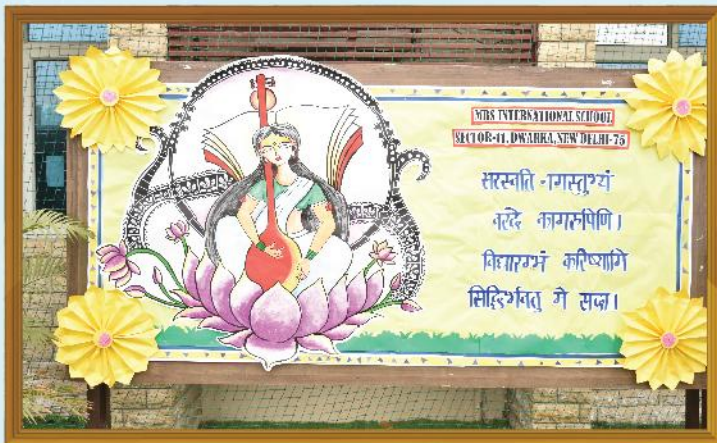 MBS INTERNATIONAL SCHOOL
SECTOR-11, DWARKA, NEW DELHI-75
सरस्वति नमस्तुभ्यं
वरदे कामरुपिणि।
विद्यारम्भं करिष्यामि
सिद्धिर्भवतु मे सदा।